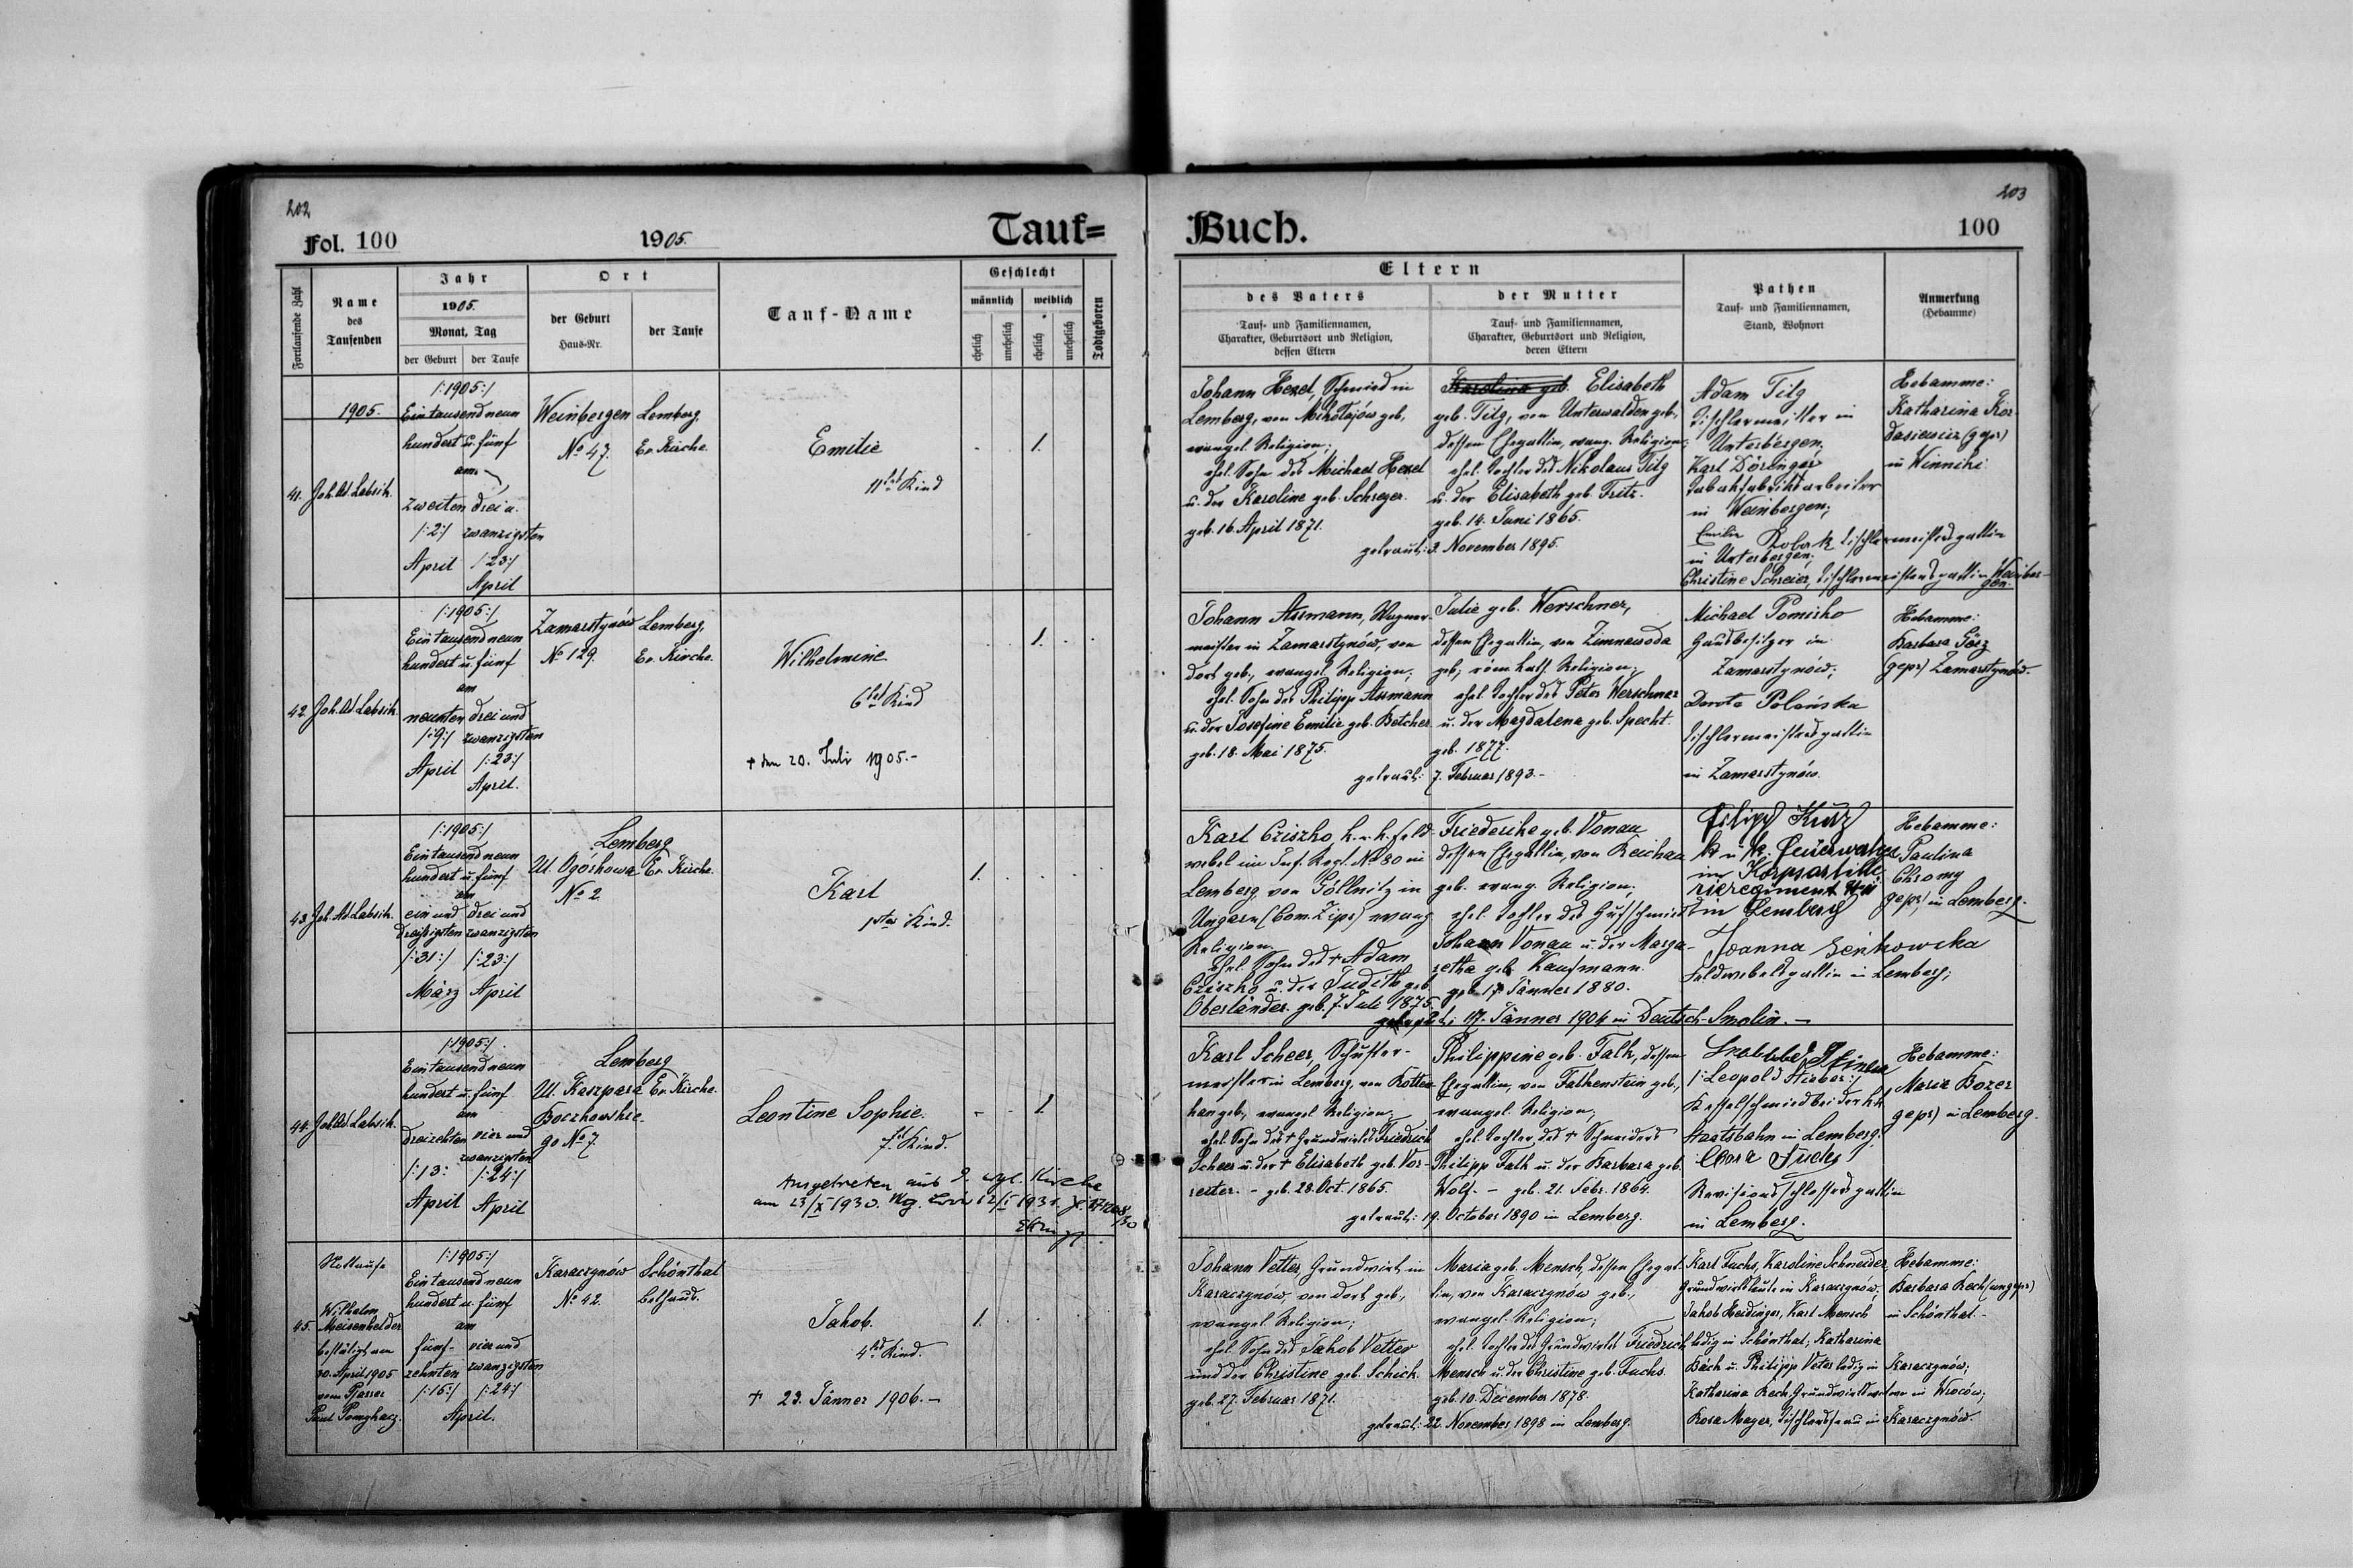 202
Fol. 100
1905.
Tauf=
Fortlaufende Zahl
Name
des
Taufenden
Jahr
1905.
Monat, Tag
der Geburt
der Taufe
Ort
der Geburt
Haus-Nr.
der Taufe
Tauf-Name
Geschlecht
männlich
weiblich
ehelich
unehelich
ehelich
unehelich
Todtgeboren
1905.
41.
Joh. Ad. Labsik.
/:1905:/
Eintausendneun
hundert u. fünf
am
zweiten
/:2:/
April
drei u.
zwanzigsten
/:23:/
April
Weinbergen
No 47.
Lemberg,
Ev. Kirche.
Emilie
11tes Kind
1.
42.
Joh. Ad. Labsik.
/:1905:/
Eintausendneun
hundert u. fünf
am
neunten
/:9:/
April
drei und
zwanzigsten
/:23:/
April.
Zamarstynów
No 129.
Lemberg,
Ev. Kirche.
Wilhelmine
6tes Kind
† den 20. Juli 1905.-
1.
43.
Joh. Ad. Labsik.
/:1905:/
Eintausendneun
hundert u. fünf
am
ein und
dreißigsten
/:31:/
März
drei und
zwanzigsten
/:23:/
April
Lemberg
Ul. Ogórkowa
No 2
Ev. Kirche.
Karl
1stes Kind.
1.
44.
Joh. Ad. Labsik.
/:1905:/
Eintausendneun
hundert u. fünf
am
dreizehten
/:13:
April
vier und
zwanzigsten
/:24:/
April
Lemberg
Ul. Kaszpara
Boczkowskie-
go No 7.
Ev. Kirche.
Leontine Sophie.
7. Kind.
Ausgetreten aus d. evgl. Kirche
am 23/X 1930.
1
45.
Nottaufe
Wilhelm
Meisenhelder
bestätigt am
30. April 1905
vom Pfarrer
Paul
/:1905:/
Eintausendneun
hundert u. fünf
am
fünf-
zehnten
/:15:/
vier und
zwanzigsten
/:24:/
April.
Karaczynów
No 42.
Schönthal
Bethaus.
Jakob.
4tes Kind.
† 23. Jänner 1906.-
1.
203
Buch.
100
Eltern
des Vaters
Tauf- und Familiennamen,
Charakter, Geburtsort und Religion,
dessen Eltern
der Mutter
Tauf- und Familiennamen,
Charakter, Geburtsort und Religion,
deren Eltern
Pathen
Tauf- und Familiennamen,
Stand, Wohnort
Anmerkung
(Hebamme)
Johann Hexel, Schmied in
Lemberg, von Mikołajów geb.,
evangel. Religion;
ehel. Sohn des Michael Hexel
u. der Karoline geb. Schreyer.
geb. 16. April 1871.
Karolina geb. Elisabeth
geb. Tilg, von Unterwalden geb.,
dessen Ehegattin, evang. Religion;
ehel. Tochter des Nikolaus Tilg
u. der Elisabeth geb. Fritz.
geb. 14. Juni 1865.
getraut: 3. November 1895.
Adam Tilg
Tischlermeister in
Unterbergen,
Karl Döringer
Tabakfabriksarbeiter
in Weinbergen;
Emilie Tischlermeistersgattin
in Unterbergen;
Christine Schreier, Tischlermeistersgattin Weinber-
gen.
Hebamme:
Katharina Kor-
dasiewicz (gepr)
in Winniki.
Johann Assmann, Wagner-
meister in Zamarstynów, von
dort geb., evangel. Religion;
ehel. Sohn des Philipp Assmann
u. der Josefine Emilie geb. Betcher.
geb. 18. Mai 1875.
Julie geb. Werschner,
dessen Ehegattin, von Zimnawoda
geb., röm. kath. Religion;
ehel. Tochter des Peter Werschner
u. der Magdalena geb. Specht.
geb. 1877.
getraut: 7. Februar 1893.-
Michael Pomirko
Grundbesitzer in
Zamarstynów;
Dorota Polańska
Tischlermeistersgattin
in Zamarstynów.
Hebamme:
Barbara Görz
(gepr) Zamarstynów.
Karl Cziszko k. u. k. Feld-
webel im Inf. Regt. No 80 in
Lemberg, von Göllnitz in
Ungarn (Com. Zips) evang.
Religion.
Ehel. Sohn des † Adam
Cziszko u. der Judith geb.
Oberländer. geb. 7. Juli 1875.
Friederike geb. Vonau
dessen Ehegattin, von Reichau
geb. evang. Religion;
ehel. Tochter des Hufschmied
Johann Vonau u. der Marga-
retha geb. Kaufmann.
geb. 17. Jänner 1880.
getraut: 17. Jänner 1904 in Deutsch-Smolin.-
Filipp Kurz
k. u. k. Feuerwerker
im Korpsartille-
rieregiment
in Lemberg
Joanna
Feldwebelsgattin in Lemberg;
Hebamme:
Paulina
Chromy
gepr) in Lemberg.
Karl Scheer, Schuster-
meister in Lemberg, von Rotten-
han geb., evangel. Religion;
ehel. Sohn des † Grundwirths Friedrich
Scheer u. der † Elisabeth geb. Vor-
reiter. - geb. 28. Oct. 1865.
Philippine geb. Falk, dessen
Ehegattin, von Falkenstein geb.,
evangel. Religion;
ehel. Tochter des † Schneiders
Philipp Falk u. der Barbara geb.
Wolf. - geb. 21. Febr. 1864.
getraut: 19. October 1890 in Lemberg.
/:Leopold Stieber:/
Kesselschmied bei der k.k.
Staatsbahn in Lemberg.
Revisionsschlossersgattin
in Lemberg.
Hebamme:
Marie Bozer
gepr) in Lemberg.
Johann Vetter, Grundwirt in
Karaczynów, von dort geb.,
evangel. Religion;
ehel. Sohn des Jakob Vetter
und der Christine geb. Schick.
geb. 27. Februar 1871.
Maria geb. Mensch, dessen Ehegat-
tin, von Karaczynów geb.,
evangel. Religion;
ehel. Tochter des Grundwirtes Friedrich
Mensch u. der Christine geb. Fuchs.
geb. 10. December 1878.
getraut: 22. November 1898 in Lemberg.
Karl Fuchs, Karoline Schneider,
Grundwirtsleute in Karaczynów;
Jakob Heidinger, Karl Mensch
ledig in Schönthal; Katharina
Bäch u. Philipp Veter ledig in Karaczynów;
Katharina Rech, Grundwirtswitwe in Wroców;
Rosa Mayer, Tischlersfrau in Karaczynów.
Hebamme:
Barbara Rech (ungepr)
in Schönthal.-